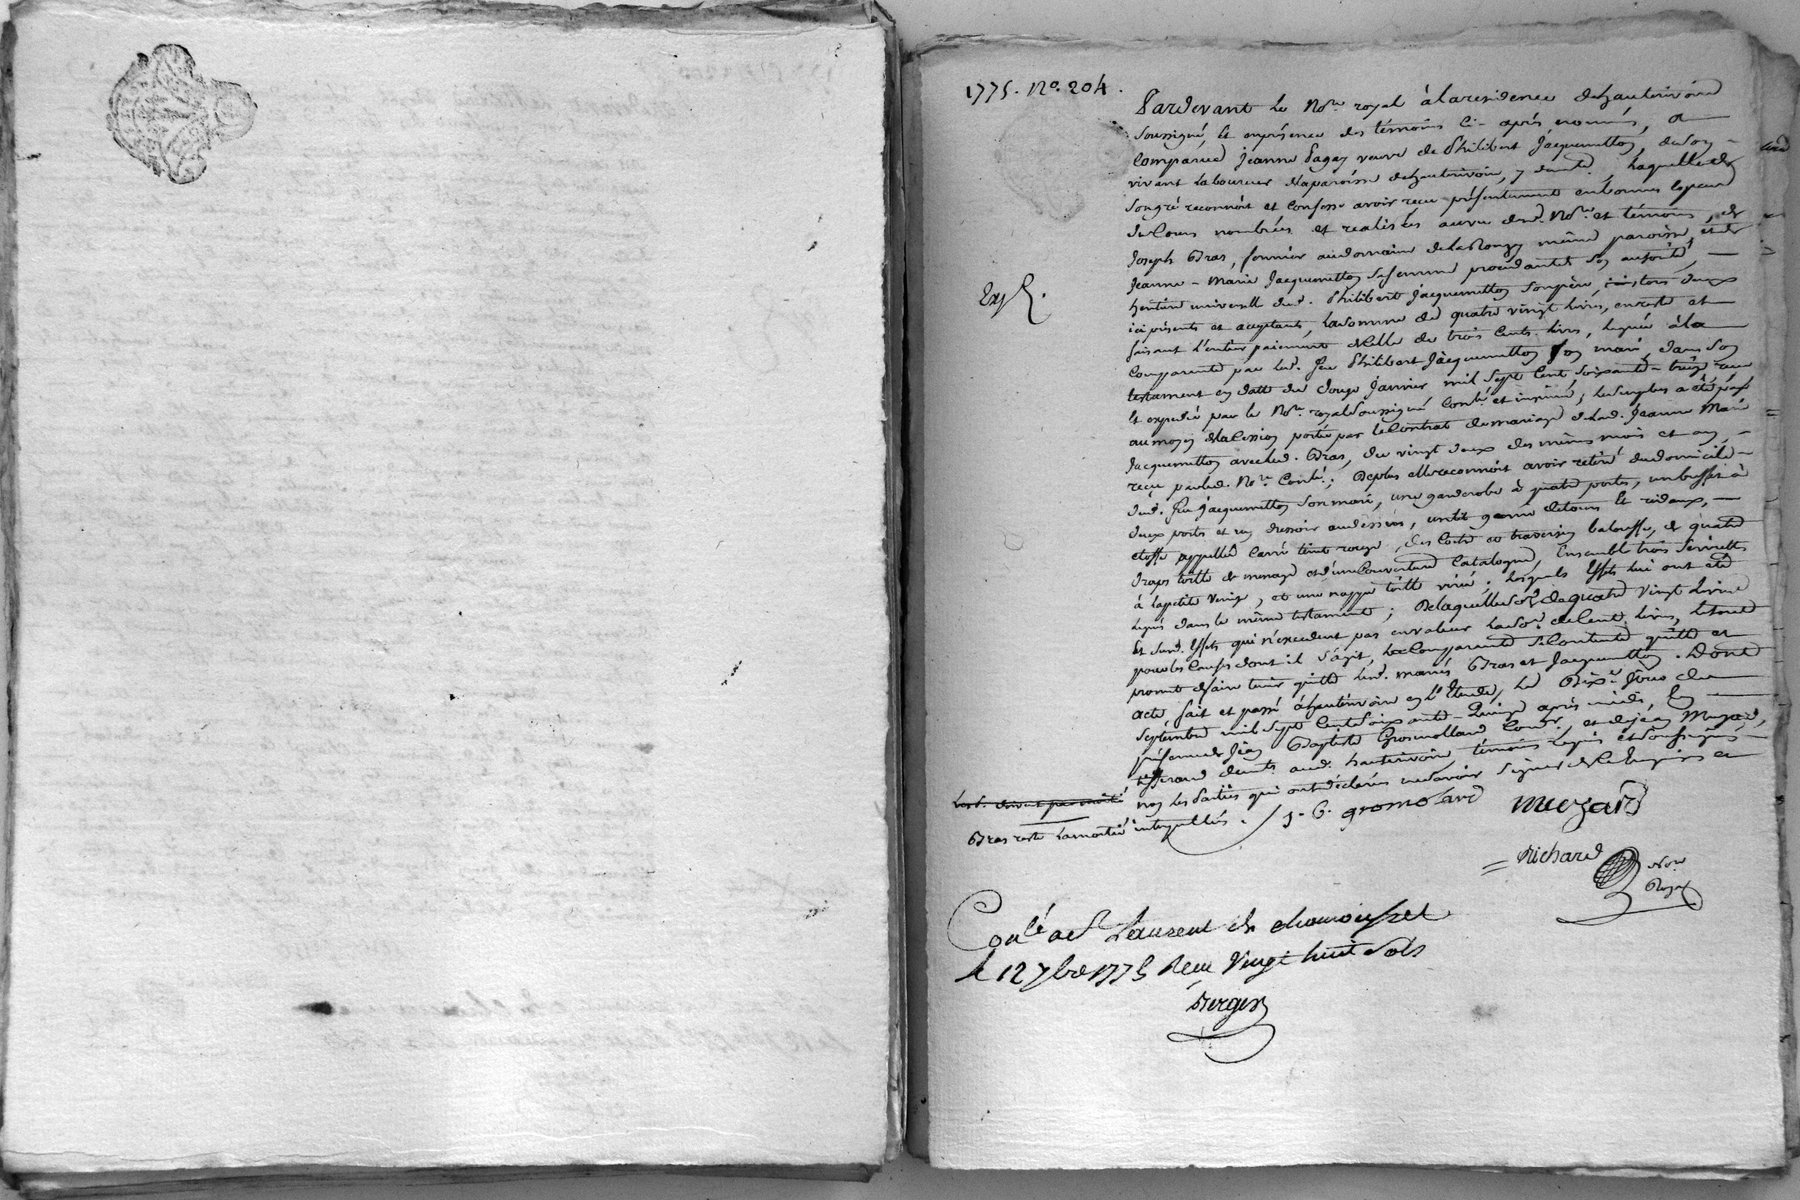 1775. No. 204.
Pardevant Le Nore. royal à la residence de hauterivoire
soussigné, Et en présence des témoins Ci-après només, a
Comparu Jeanne Pagay veuve de Philibert Jacquemetton, de son
vivant Laboureur de la paroisse de hauterivoire, y demte. Laquelle de
son gré reconnoit et Confesse avoir reçu présentement en bonnes especes
de Cours nombrées et realisées au vu dud. Nore. et témoins, de
Joseph Bras, fermier au domaine de la Rongy même paroisse, et de
Jeanne-Marie Jacquemetton sa femme procédante de son autorité,
heritiere universelle dud. Philibert Jacquemetton son père, tous deux
ici présents et acceptants, La somme de quatre vingt livres, en reste et
faisant l'entier paiement de Celle de trois Cents livres, leguée à la
Comparante par led. feu Philibert Jacquemetton son mari, dans son
testament en datte du douze Janvier mil sept Cent soixante-treize reçu
et expedié par le Nore. royal soussigné Contlé. et insinué; Le surplus a été payé
au moyen de la Cession portée par le Contrat de mariage de lad. Jeanne Marie
Jacquemetton avec led. Bras, du vingt deux des mêmes mois et an,
reçu par led. Nore. Contlé.; De plus elle reconnoit avoir retiré du domicile
dud. feu Jacquemetton son mari, une garderobe à quatre portes, un buffet à
deux portes et un dressoir au dessus, un lit garni de tours Et rideaux,
etoffe appellée Carré teint rouge, de Coitre et traversin balouffe, de quatre
draps toille de menage et d'une Couverture Catalogne, Ensemble trois serviettes
à la petite Venise, et une nappe toille; lesquels effets lui ont été
legués dans le même testament; De laquelle so. de quatre vingt livres
Et desd. effets qui n'excedent pas en valeur la so. de Cent livres, le tout
pour les Causes dont il s'agit, La Comparante se Contente quitte et
promet de faire tenir quitte lesd. mariés Bras et Jacquemetton. Dont
acte fait et passé à hauterivoire en l'Etude, Le Dixe. Jour de
septembre mil sept Cent soixante-Quinze après midi, En
présence de Jean Baptiste Gromolard, et de Jean Muzard,
tisserand demts. aud. hauterivoire témoins requis et soussignés
non les Parties qui ont déclarés ne savoir signer de Ce Enquises et
interpellées.
Bras reste la moitié
J. B. gromolard
muzard
Richard Nore Royal
Exp.
Conlé. a St Laurent de chamousset
le 12 7bre 1775 Reçu Vingt huit sols
Berger